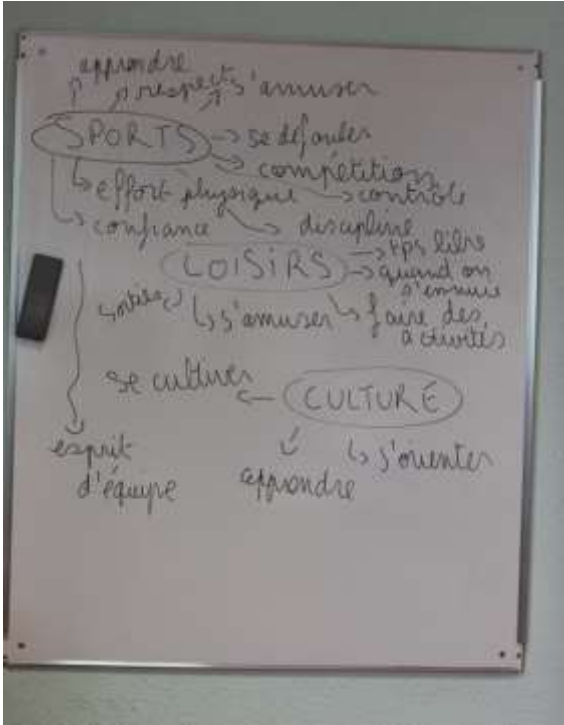 apprendre
respect s'amuser
SPORTS → se défouler
→ compétition
↳ effort physique → contrôle
↳ confiance ↳ discipline
LOISIRS → tps libre
→ quand on
s'ennuie
sorties ↳ s'amuser ↳ faire des
activités
se cultiver ← CULTURE
esprit
d'équipe
apprendre
↳ s'orienter